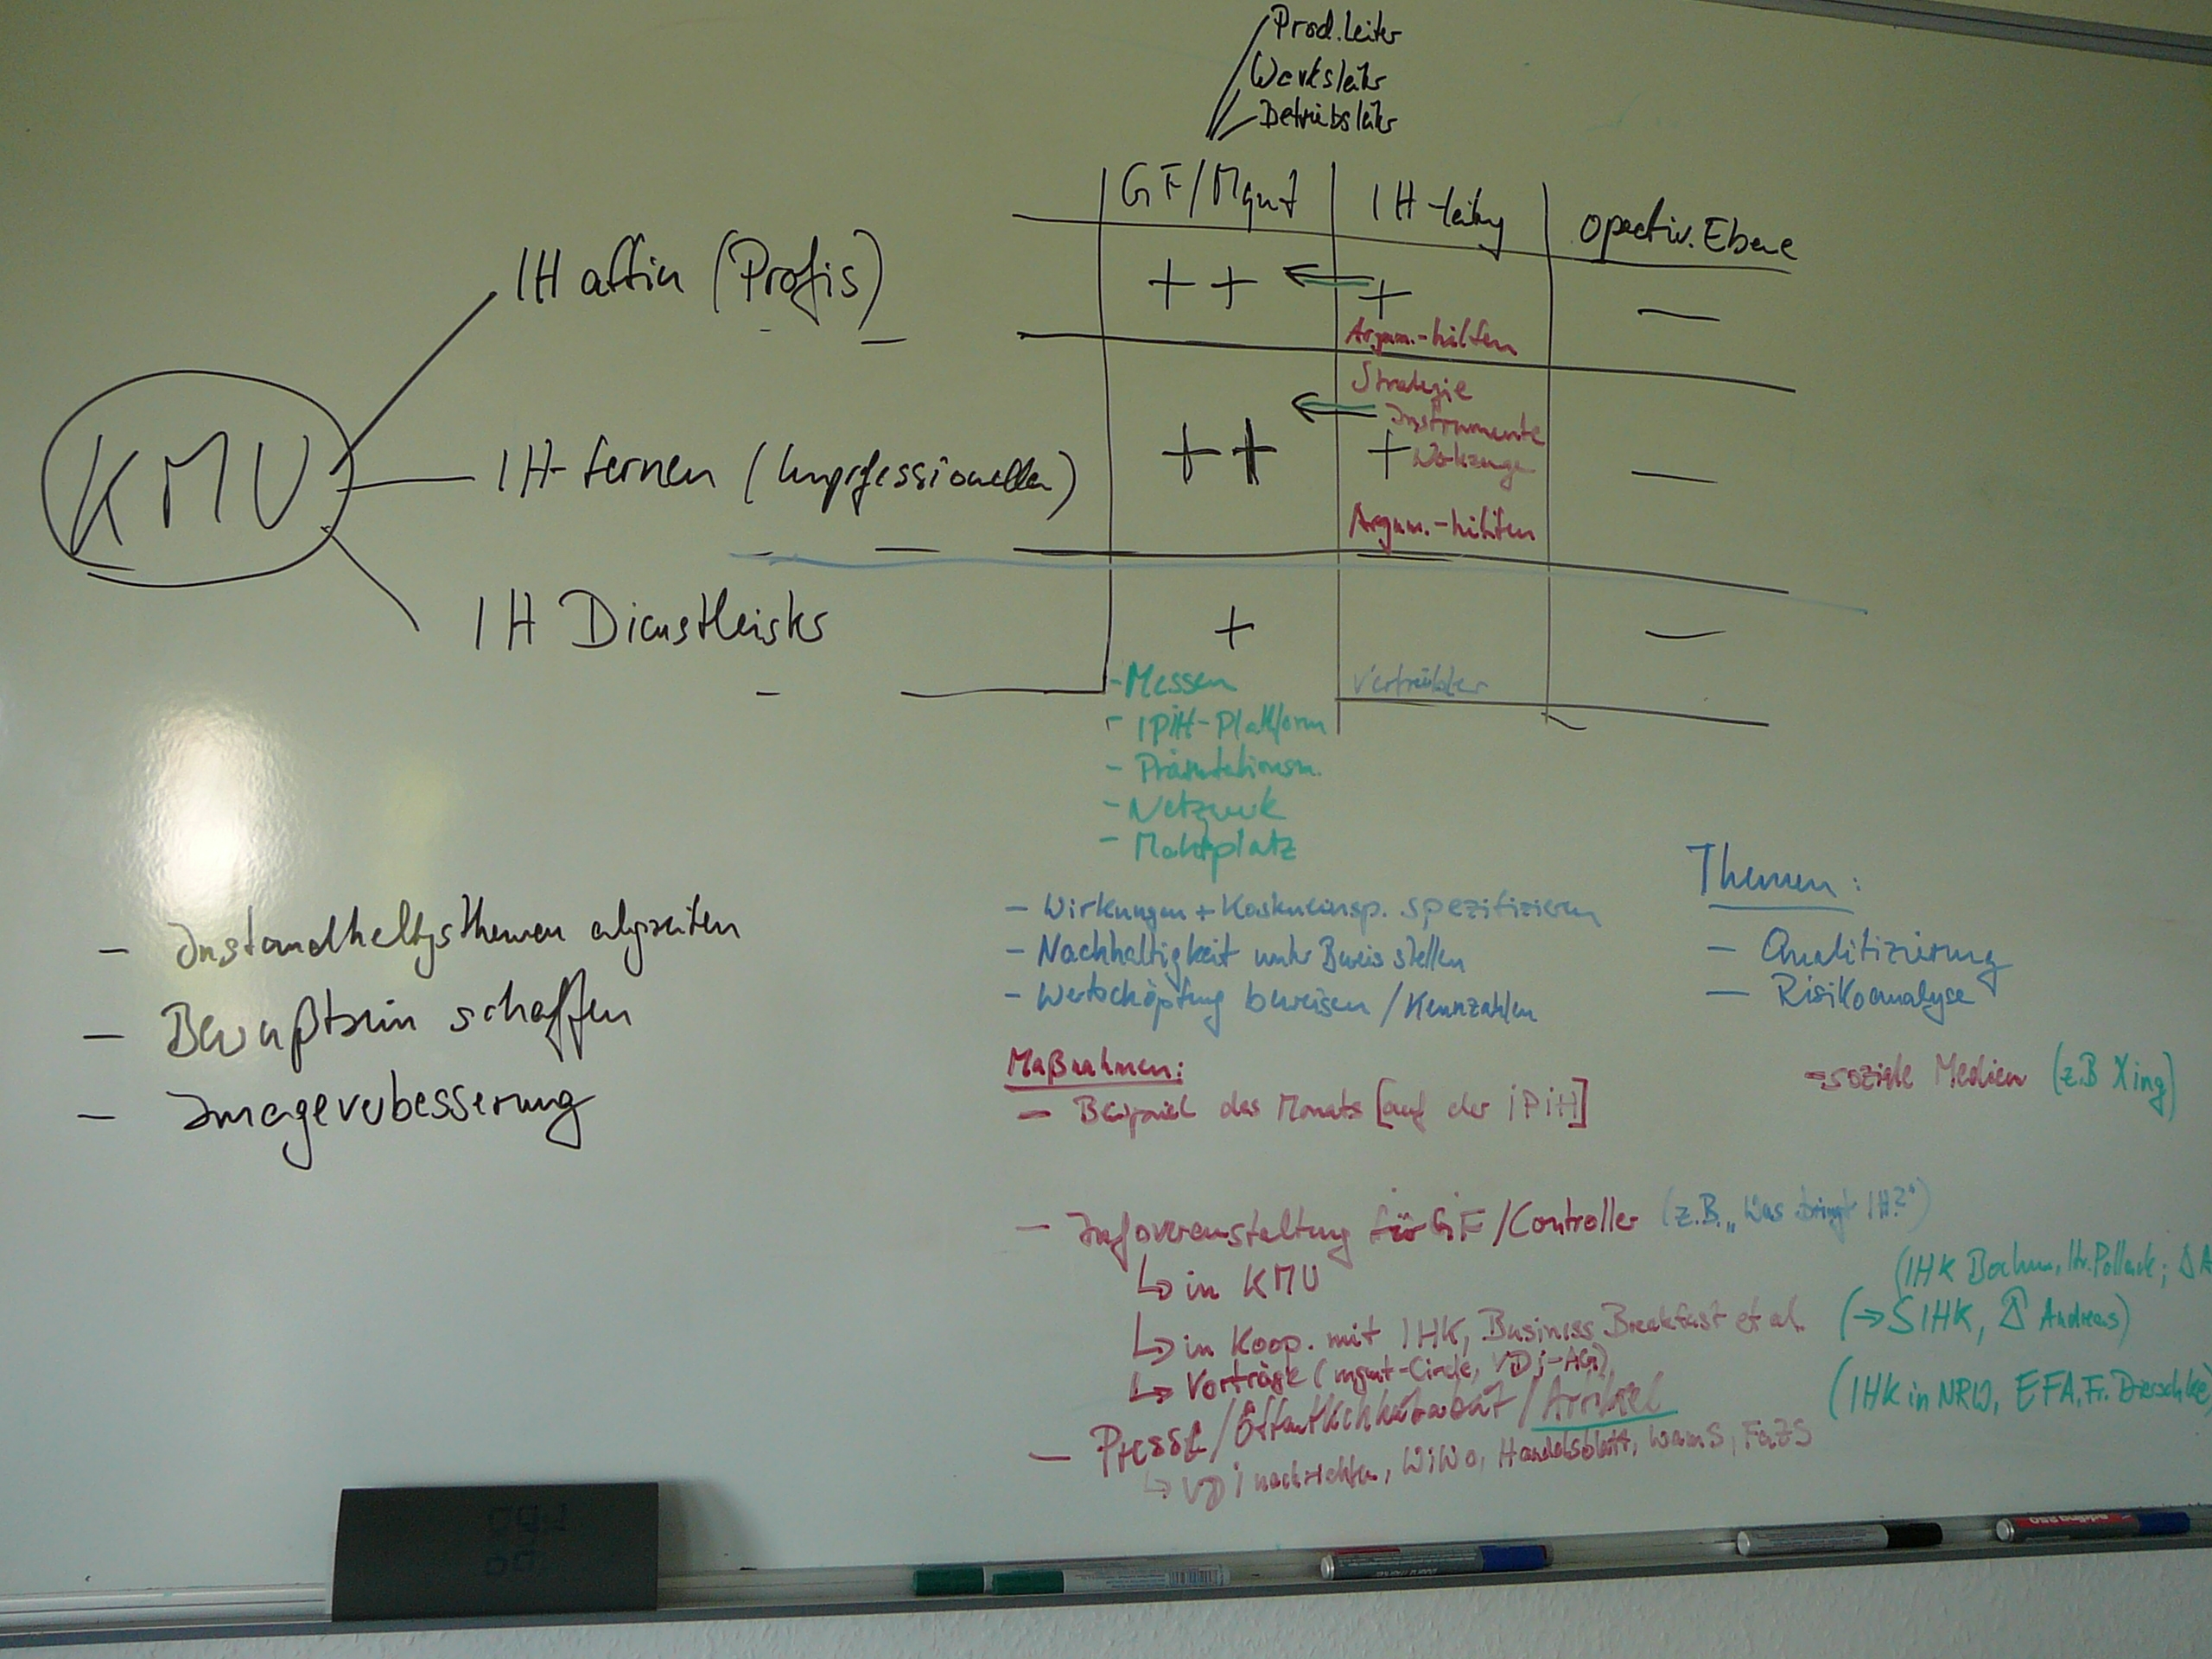 Prod.leiter
Werksleiter
Betriebsleiter
GF/Mgmt
IH-leitung
operativ. Ebene
KMU
IH affin (Profis)
++
+
Argum.-hilfen
—
IH-fernen (Unprofessionellen)
++
Strategie
Instrumente
+ Werkzeuge
Argum.-hilfen
—
IH Dienstleister
+
—
Vertriebler
- Messen
- IPIH-Plattform
- Präsentationsm.
- Netzwerk
- Marktplatz
- Instandheltgsthemen
- Bewußtsein schaffen
- Imageverbesserung
- Wirkungen + Kosteneinsp. spezifizieren
- Nachhaltigkeit unter Beweis stellen
- Wertschöpfung beweisen / Kennzahlen
Themen:
- Qualifizierung
- Risikoanalyse
Maßnahmen:
- Beispiel des Monats [auf der iPiH]
- soziale Medien (z.B Xing)
- Infoveranstaltung für GF/Controller (z.B. „Was bringt IH?“)
↳ in KMU
(IHK Bochum, Hr. Pollack;
↳ in Koop. mit IHK, Business Breakfast et al.
(→ SIHK, Andreas)
↳ Vorträge (mgmt-Circle, VDi-AG)
(IHK in NRW, EFA, Fr. Dierschke)
- Presse/Öffentlichkeitsarbeit/Artikel
↳ VDi nachrichten, WiWo, Handelsblatt, WamS, FAZS
edding 660